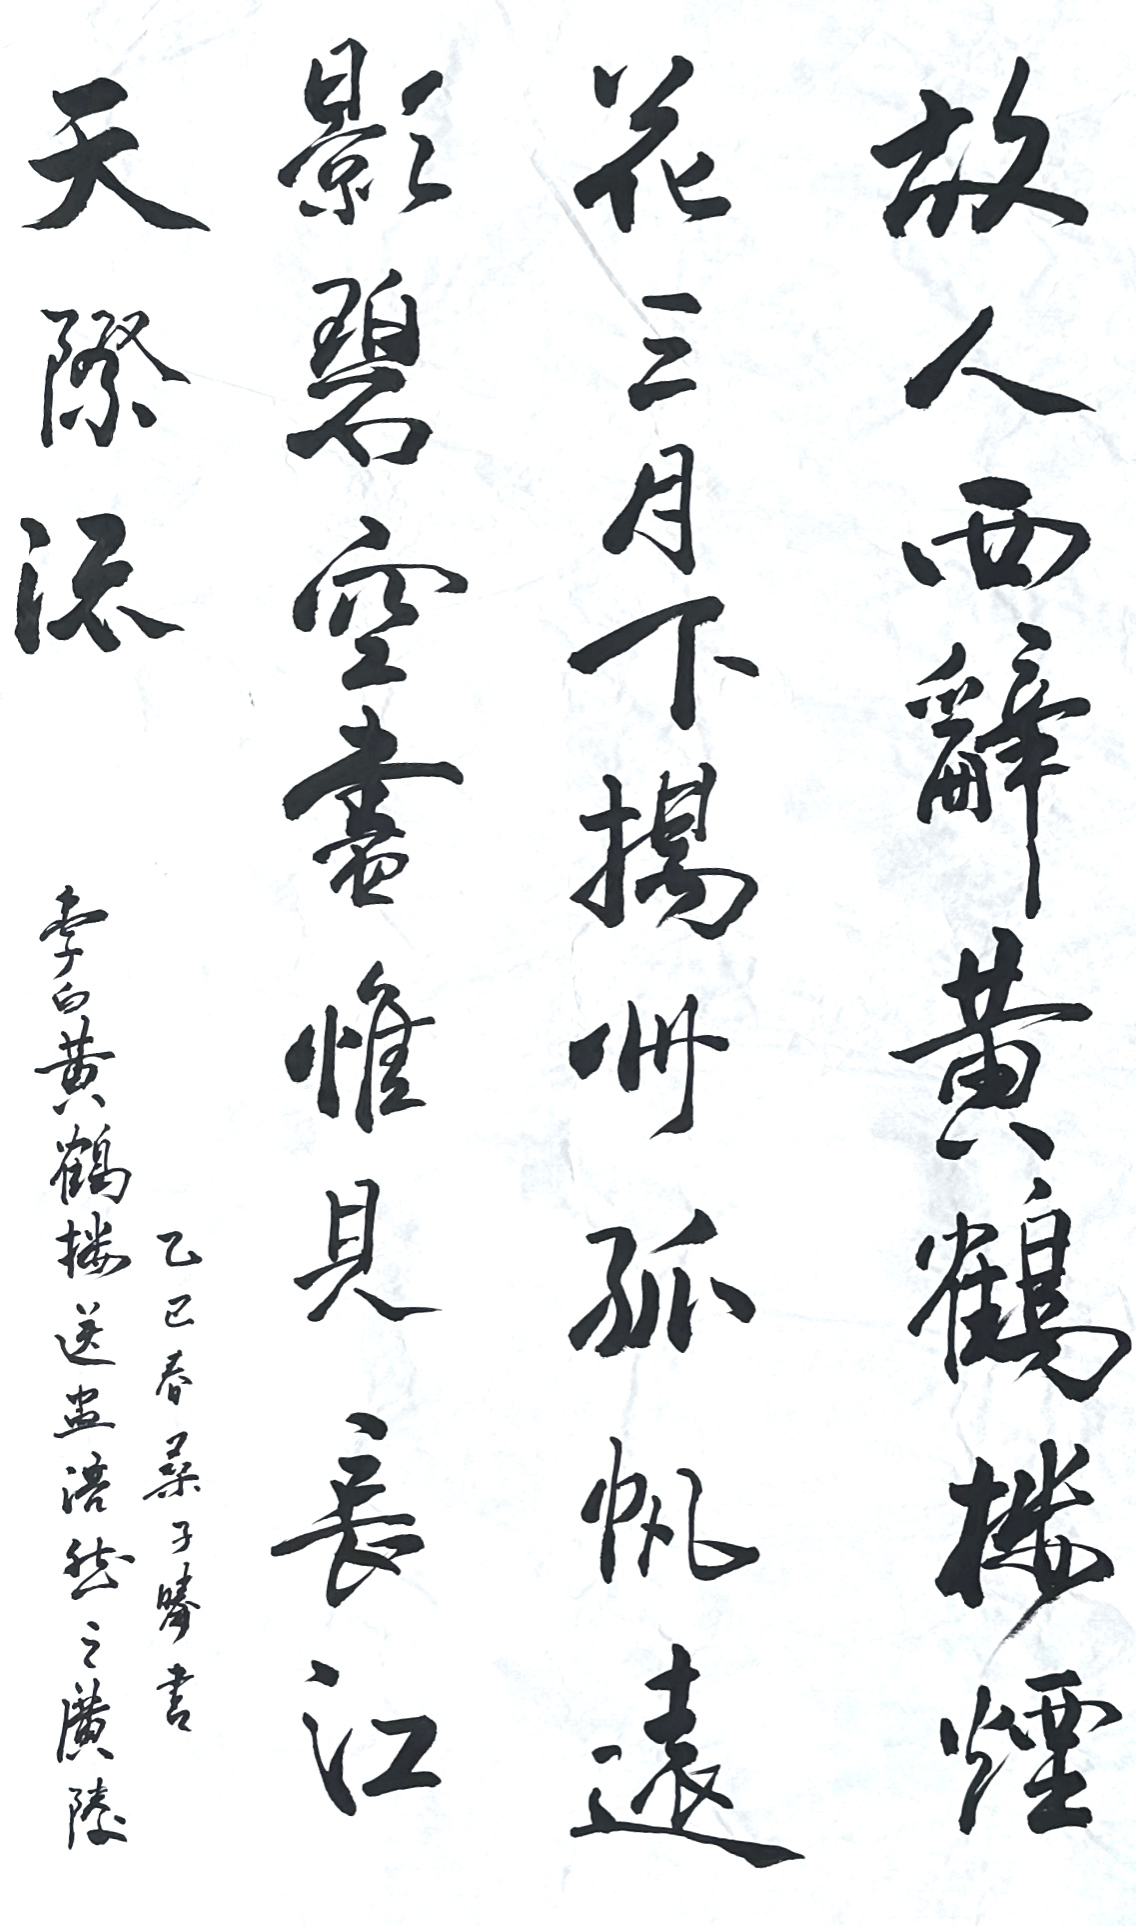 故人西辭黃鶴樓煙
花三月下揚州孤帆遠
影碧空盡惟見長江
天際流
乙巳春桑子 書
李白黃鶴樓送孟浩然之廣陵